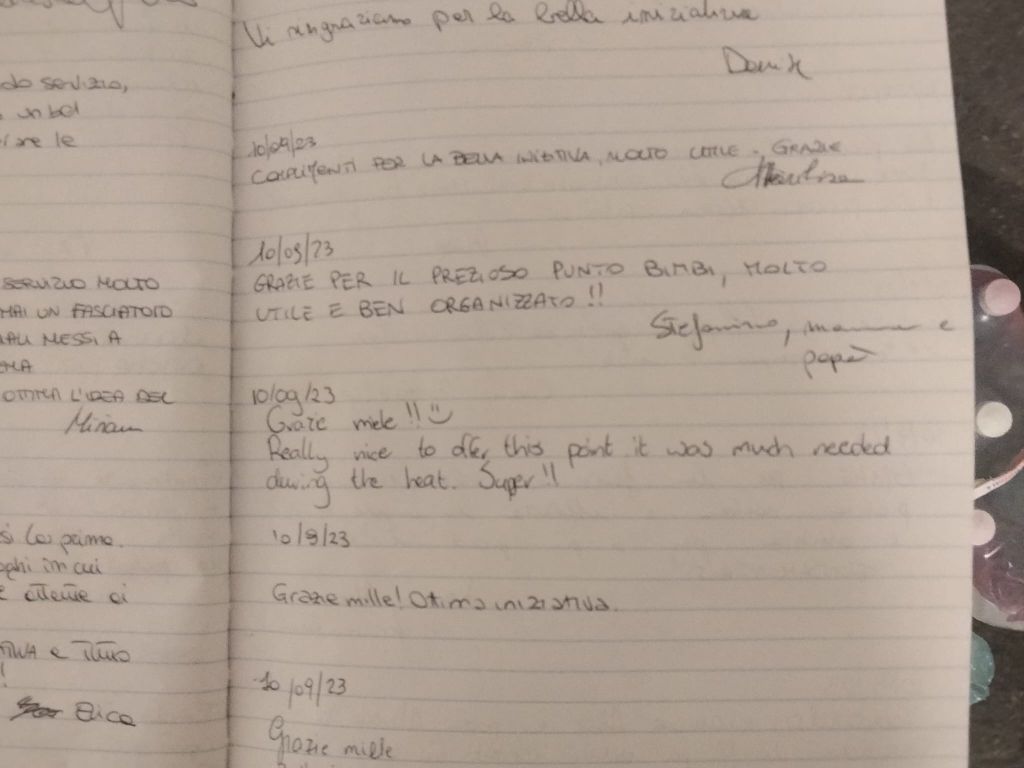 do servizio,
un bel
le
SERVIZIO MOLTO
MAI UN FASCIATOIO
MESSI A
OTTIMA L'IDEA DEL
Miriam
si la prima
in cui
e attente ai
e
Bica
Vi ringraziamo per la bella iniziativa
10/09/23
COMPLIMENTI PER LA BELLA INIZIATIVA, MOLTO UTILE. GRAZIE
10/09/23
GRAZIE PER IL PREZIOSO PUNTO BIMBI, MOLTO
UTILE E BEN ORGANIZZATO!!
Stefanino, mamma e
papà
10/09/23
Grazie miele!! :)
Really nice to offer this point it was much needed
during the heat. Super!!
10/9/23
Grazie mille! Ottima iniziativa.
10/09/23
Grazie mille